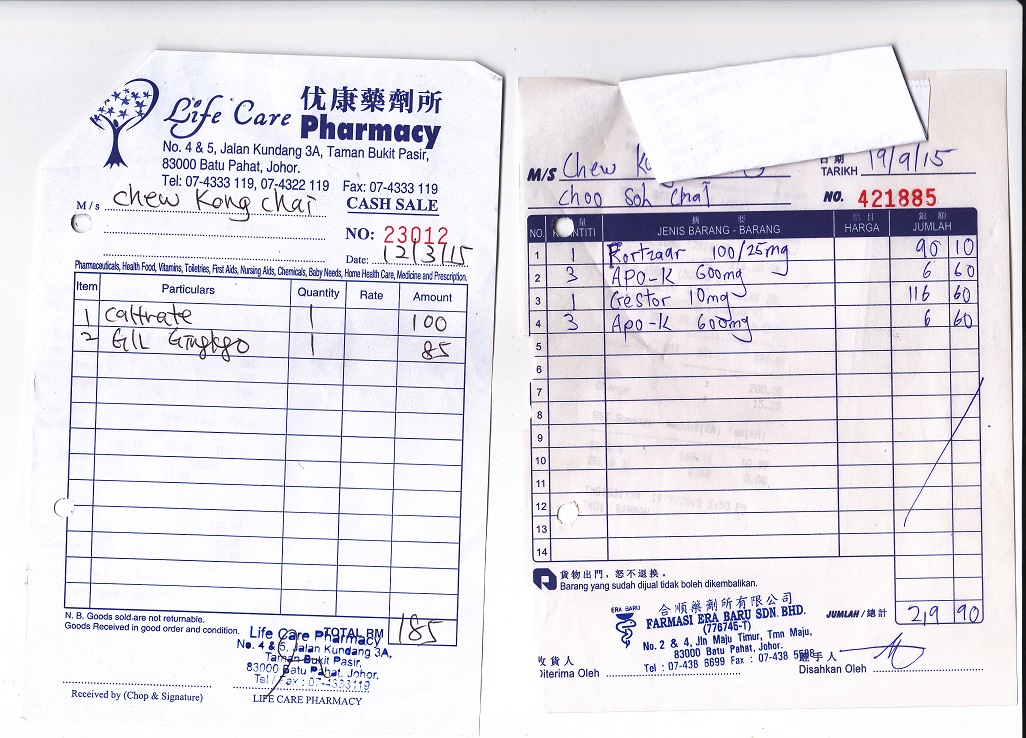 Life Care
优康藥劑所
Pharmacy
No. 4 & 5, Jalan Kundang 3A, Taman Bukit Pasir,
83000 Batu Pahat, Johor.
Tel: 07-4333 119, 07-4322 119 Fax: 07-4333 119
M/s Chew Kong Chai
CASH SALE
NO: 23012
Date: 12/3/15
Pharmaceuticals, Health Food, Vitamins, Toiletries, First Aids, Nursing Aids, Chemicals, Baby Needs, Home Health Care, Medicine and Prescription.
Item Particulars Quantity Rate Amount
1 Caltrate 1 100
2 G/L Gingkgo 1 85
N. B. Goods sold are not returnable.
Goods Received in good order and condition.
TOTAL RM 185
Life Care Pharmacy
No. 4 & 5, Jalan Kundang 3A,
Taman Bukit Pasir,
83000 Batu Pahat, Johor.
Tel / Fax : 07-4333119
Received by (Chop & Signature)
LIFE CARE PHARMACY
M/S Chew
日期
TARIKH 19/9/15
Choo Soh Chai
NO. 421885
量 摘要 價目 銀額
NO. JENIS BARANG - BARANG HARGA JUMLAH
1 1 Fortzaar 100/25mg 90 10
2 3 APO-K 600mg 6 60
3 1 Gestor 10mg 116 60
4 3 Apo-K 600mg 6 60
5
6
7
8
9
10
11
12
13
14
貨物出門，恕不退換。
Barang yang sudah dijual tidak boleh dikembalikan.
ERA BARU
合順藥劑所有限公司
FARMASI ERA BARU SDN. BHD.
(776745-T)
No. 2 & 4, Jln Maju Timur, Tmn Maju,
83000 Batu Pahat, Johor.
Tel : 07-438 6699 Fax : 07-438
JUMLAH / 總計 219 90
收貨人
Diterima Oleh
經手人
Disahkan Oleh